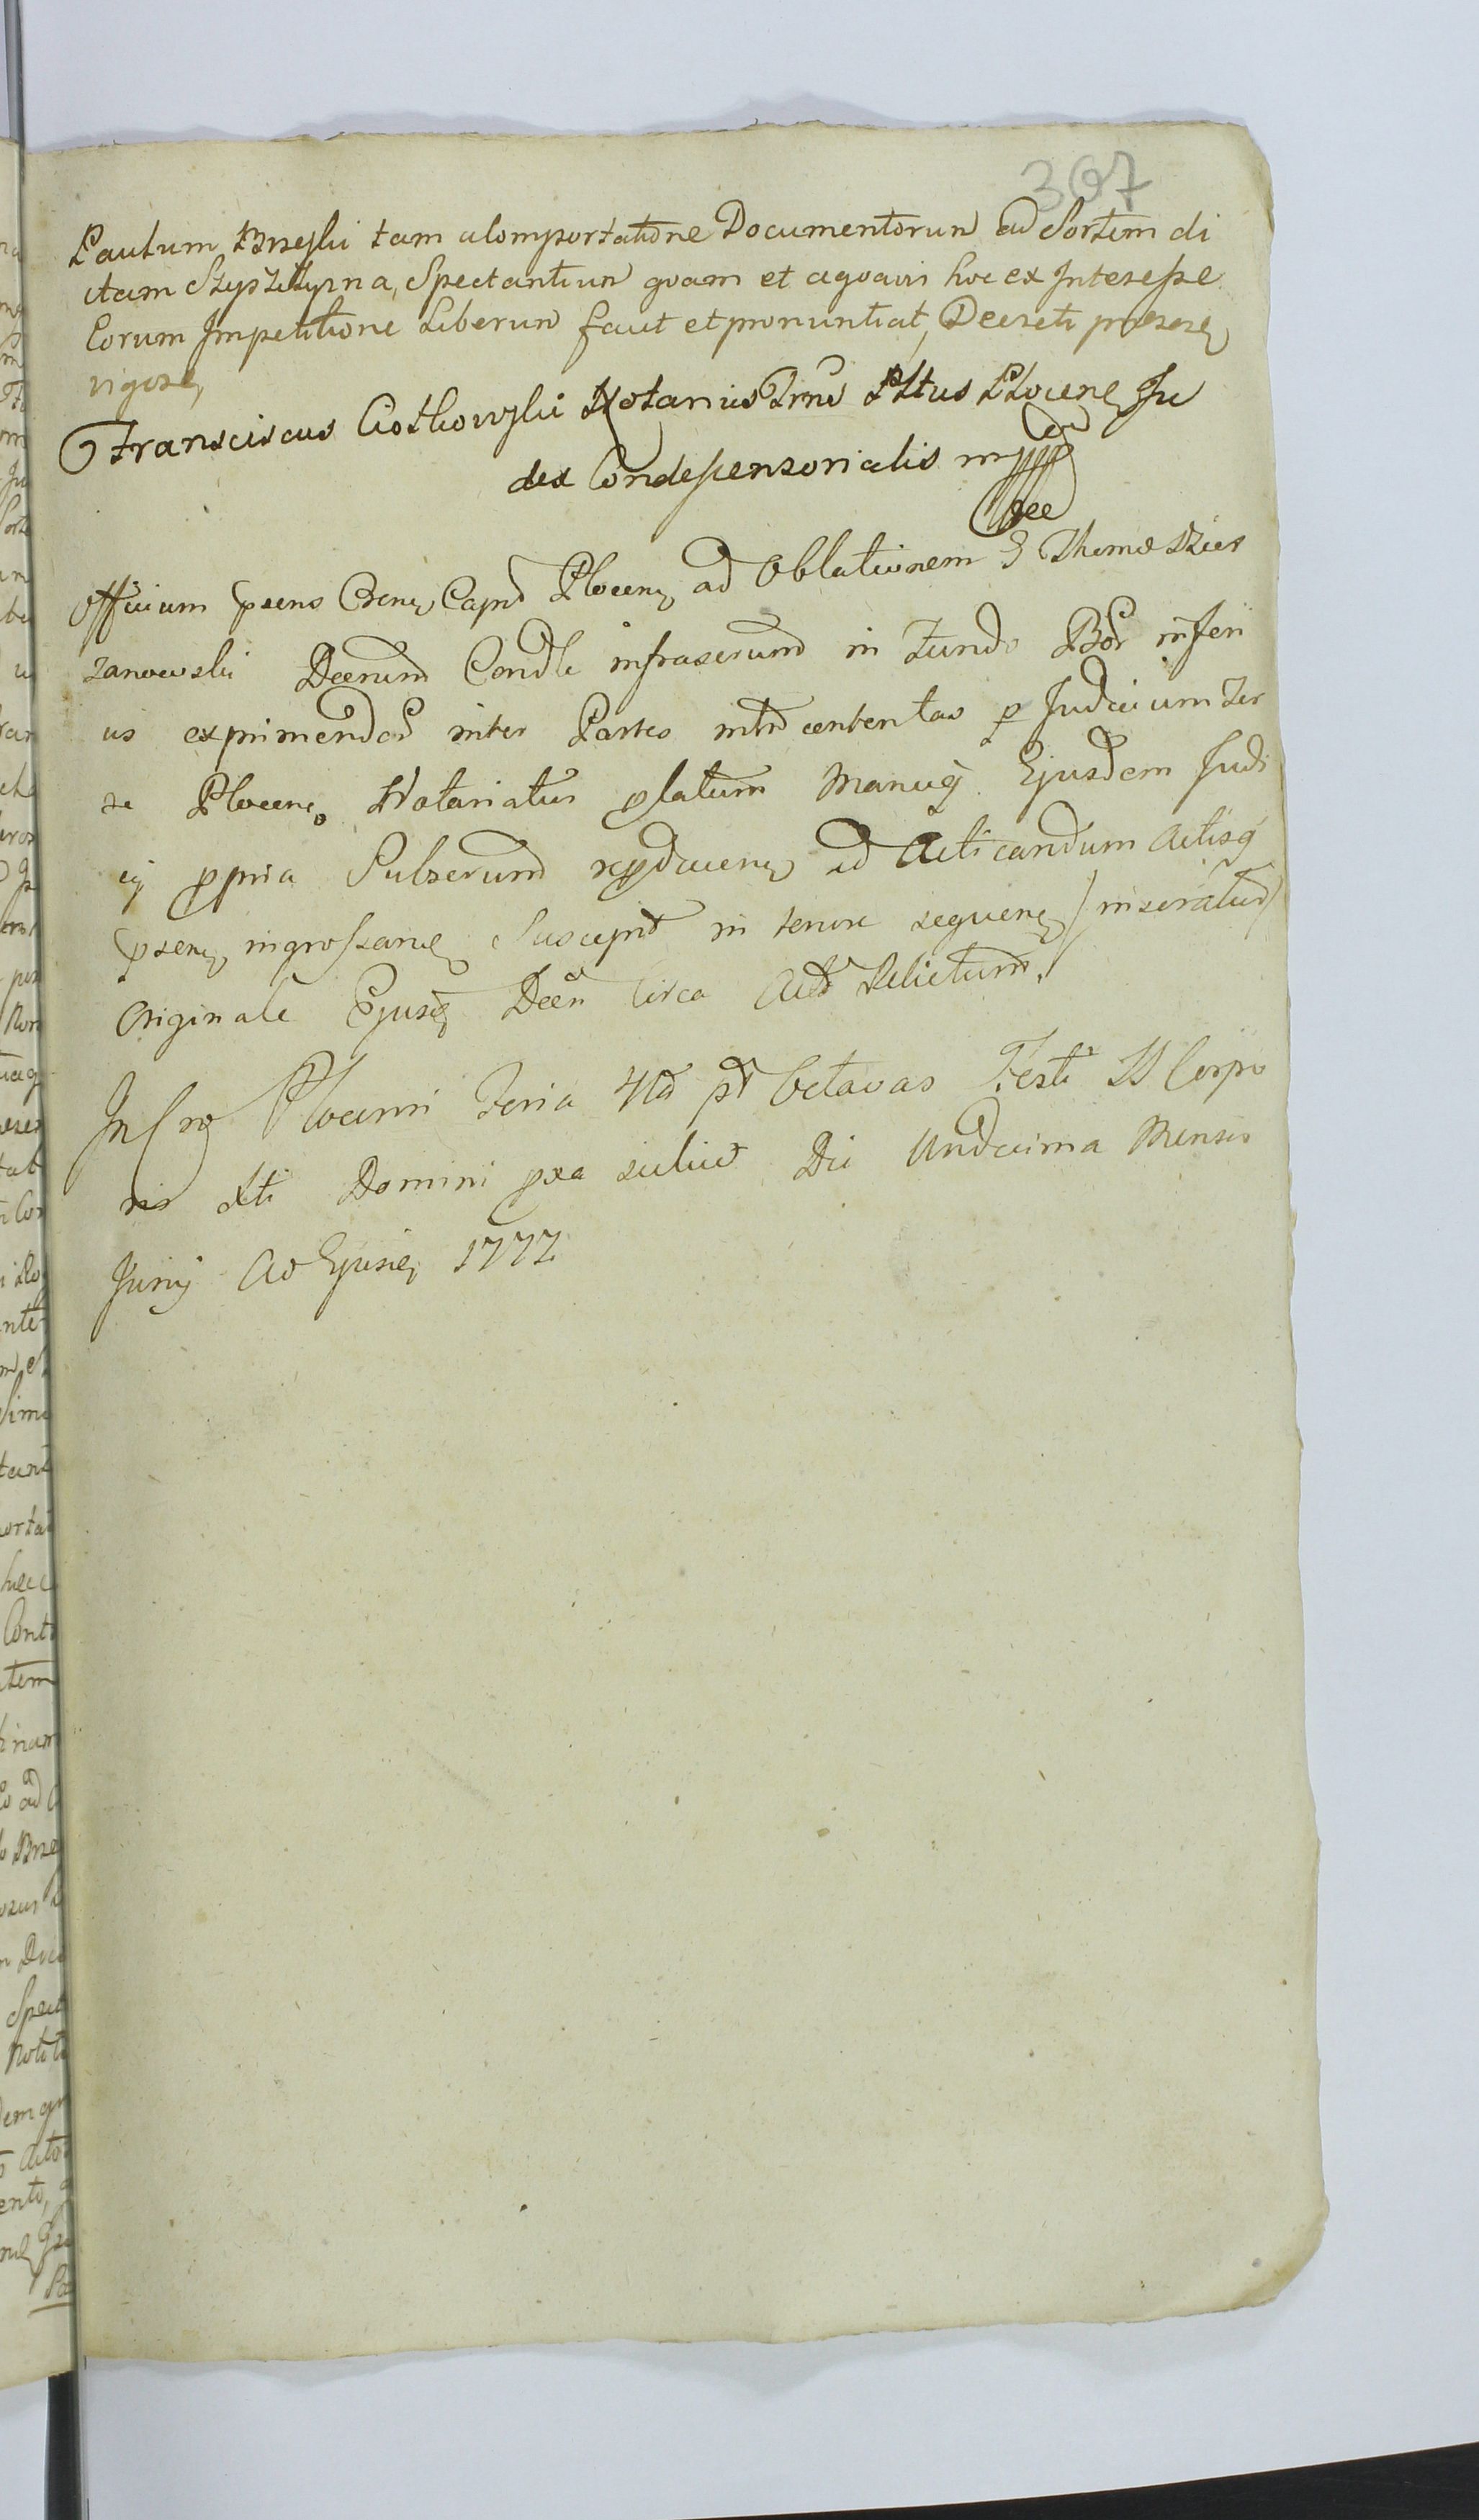 307
Paulum Brzeski tam a Comportatione Documentorum ad Sortem di
ctam Szyszczyzna, Spectantium quam et a quavis hoc ex Interesse
Eorum Impetitione Liberum facit et pronuntiat, Decreti præsen
vigore,
Franciscus Ciołkowski Notarius Trris Pltus Plocen Ju
dex Condescensorialis mp
Officium psens Csren Capnl Plocen ad Oblationem G Thomæ Dzier
zanowski Decrum Condle infrascrum in Fundo Bor inferi
us exprimendor inter Partes intro contentas p Judicium Ter
re Plocen Notariatus platum Manuq Ejusdem Judi
cij ppria Subscrum repducen ad Acticandum Actisq
psen ingrossand Suscepit in tenore sequen / inseratur /
Originale Ejusd Decr Circa Acta Relictum.
In Cro Plocen Feria 4ta pt Octavas Festi SS Corpo
ris Xti Domini pxa scilicet Die Undecima Mensis
Junij Ao Ejusd 1777